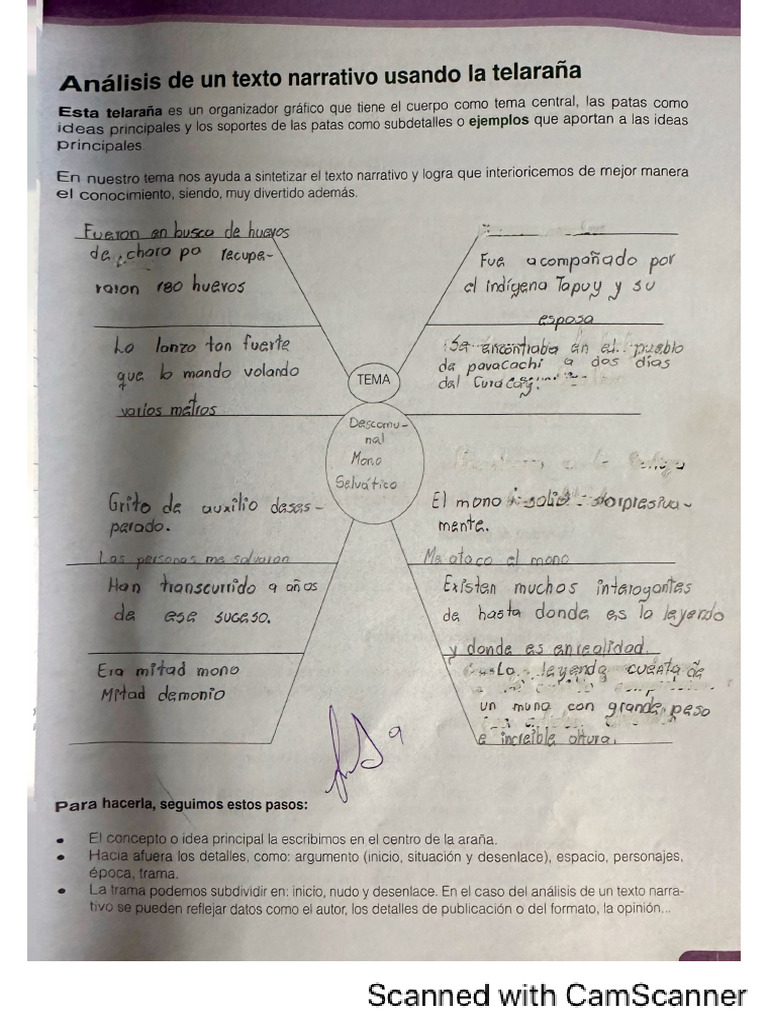 Análisis de un texto narrativo usando la telaraña
Esta telaraña es un organizador gráfico que tiene el cuerpo como tema central, las patas como
ideas principales y los soportes de las patas como subdetalles o ejemplos que aportan a las ideas
principales.
En nuestro tema nos ayuda a sintetizar el texto narrativo y logra que interioricemos de mejor manera
el conocimiento, siendo, muy divertido además.
Fueron en busca de huevos
de charo po recupe-
raron 180 huevos
Lo lanzo tan fuerte
que lo mando volando
varios metros
Fue acompañado por
el indígena Tapuy y su
esposa
Se encontraba en el pueblo
de pavacachi a dos días
del
TEMA
Descomu-
nal
Mono
Selvático
Grito de auxilio deses-
parado.
Las personas me salvaron
Han transcurrido 9 años
de ese suceso.
Era mitad mono
Mitad demonio
El mono salio sorpresiva-
mente.
Me ataco el mono
Existen muchos interoyantes
de hasta donde es la leyendo
y donde es enrealidad.
La leyenda cuenta de
un muno con grande peso
e increible altura.
9
Para hacerla, seguimos estos pasos:
• El concepto o idea principal la escribimos en el centro de la araña.
• Hacia afuera los detalles, como: argumento (inicio, situación y desenlace), espacio, personajes,
época, trama.
• La trama podemos subdividir en: inicio, nudo y desenlace. En el caso del análisis de un texto narra-
tivo se pueden reflejar datos como el autor, los detalles de publicación o del formato, la opinión...
Scanned with CamScanner